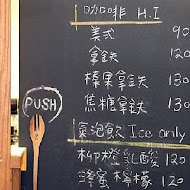 咖啡 H.I
美式 90
拿鉄 120
榛果拿鉄 130
焦糖拿鉄 130
氣泡飲 Ice only
柳橙乳酸 120
蜂蜜檸檬 120
PUSH